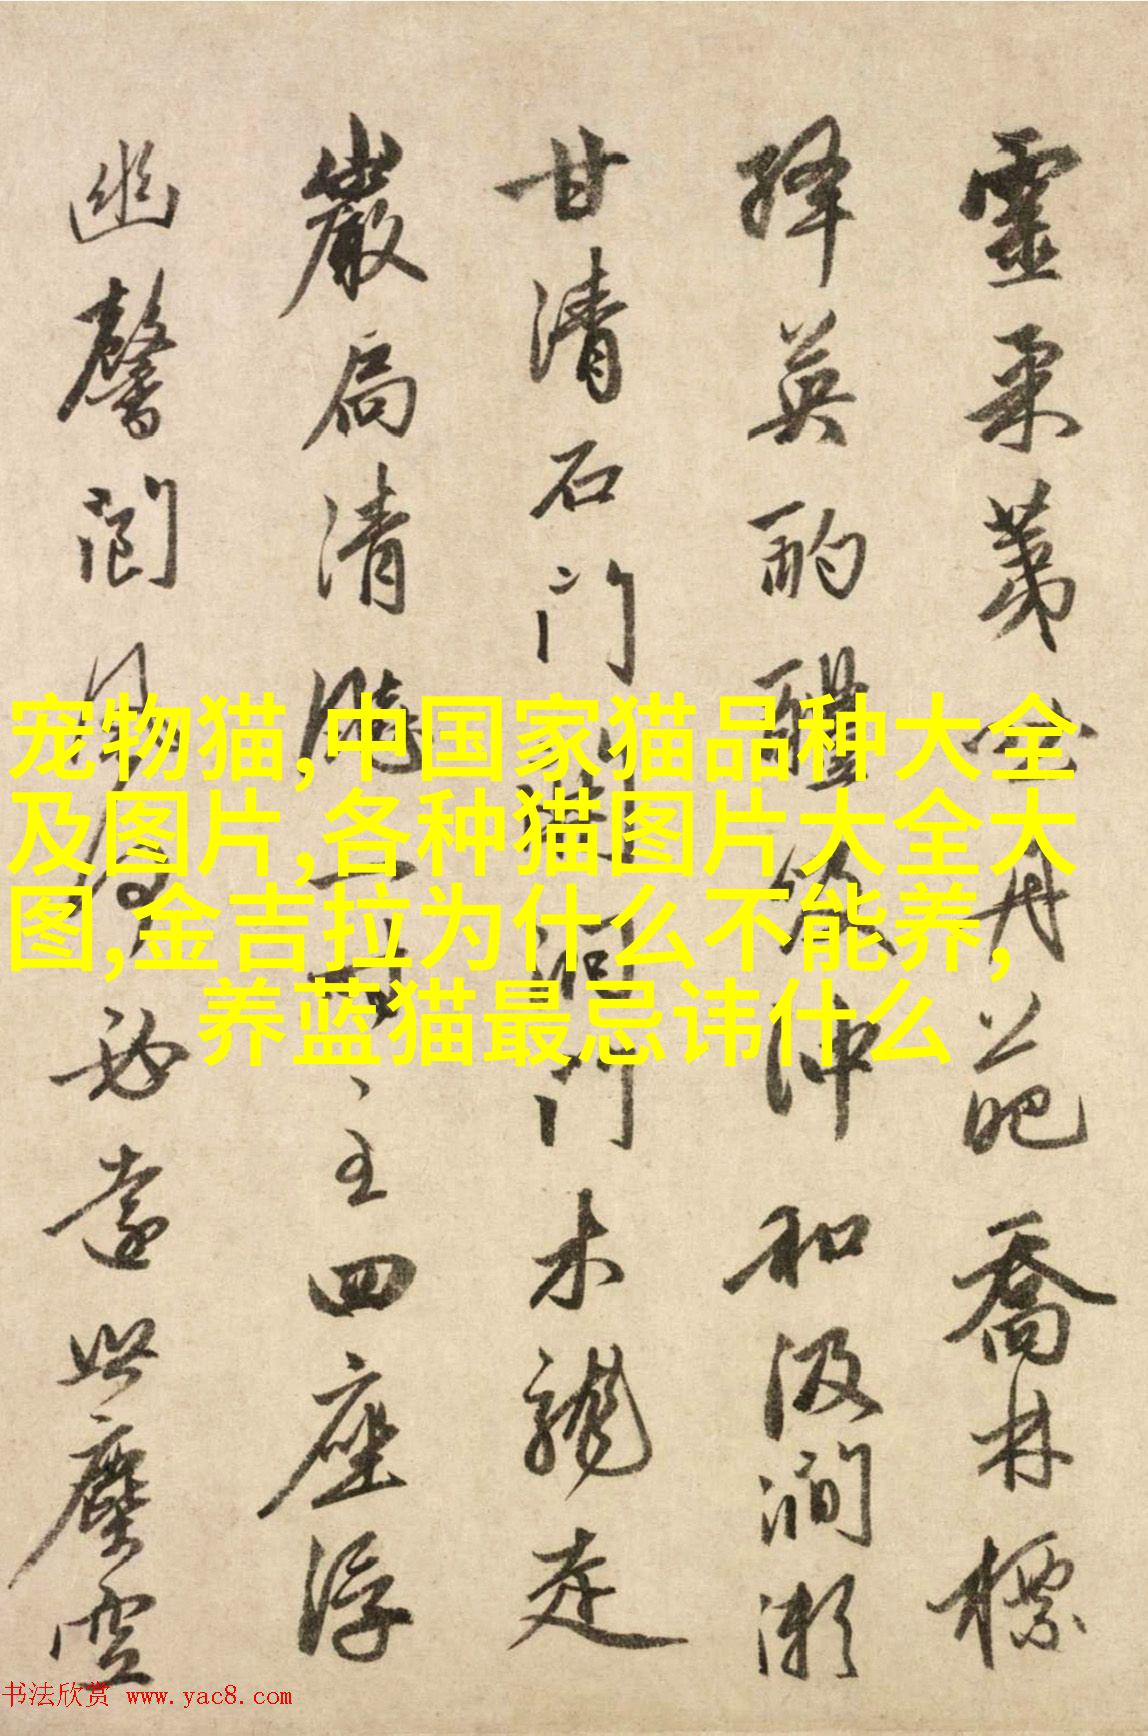 靈采蕚丹葩喬林標
絳英酌醴飲沖和汲澗瀬
甘清石門門木龍走
巖扃清飈主四座浮
幽馨閬必遠與塵空
宠物猫,中国家猫品种大全
及图片,各种猫图片大全大
图,金吉拉为什么不能养,
养蓝猫最忌讳什么
书法欣赏 www.yac8.com